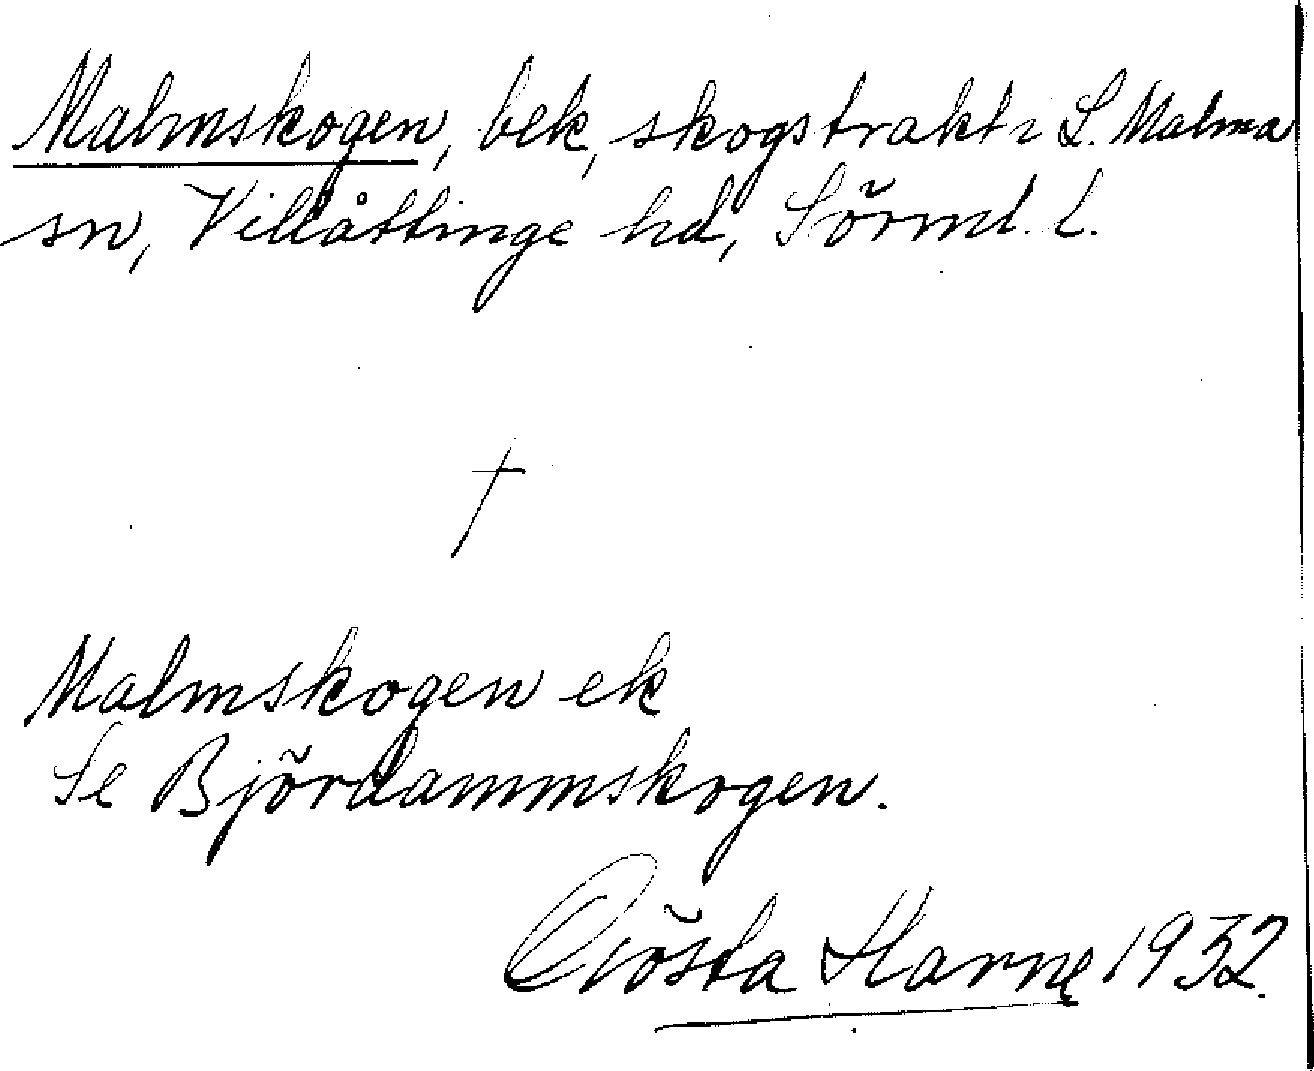 Malmskogen, bek, skogstrakt i L. Malma
sn, Villåttinge hd, Sörml. l.
†
Malmskogen ek
Se Björdammskogen.
Gösta Harne 1932.